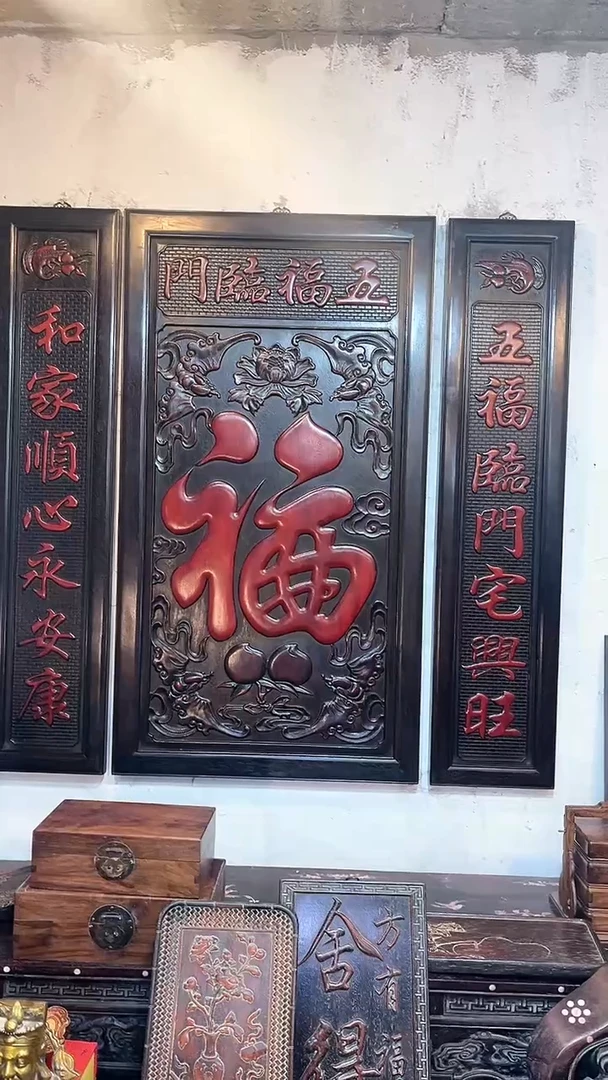 五福臨門
福
五福臨門宅興旺
和家順心永安康
方有福
舍得